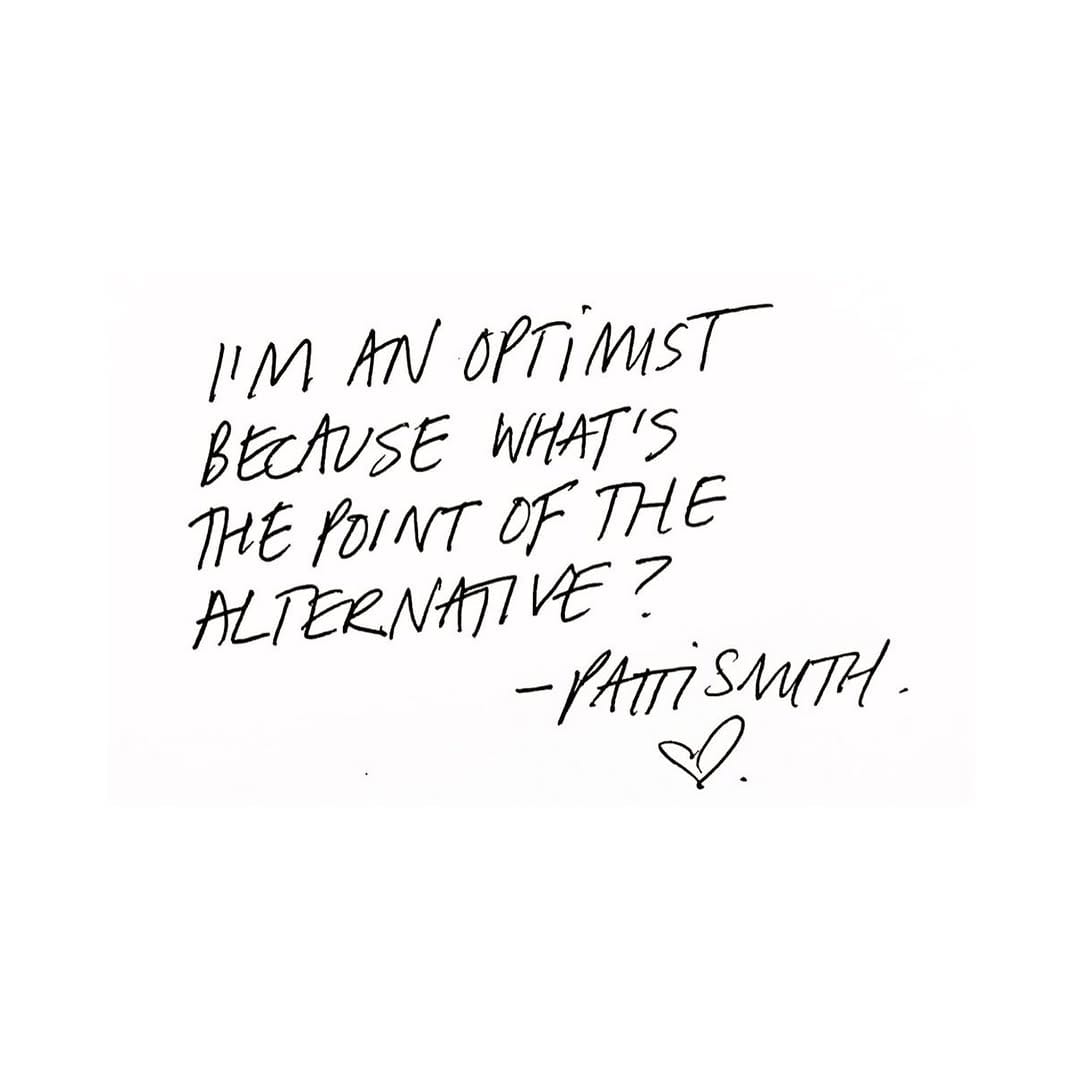 I'M AN OPTiMIST
BECAUSE WHAT'S
THE POINT OF THE
ALTERNATIVE?
-PATTi SMITH.